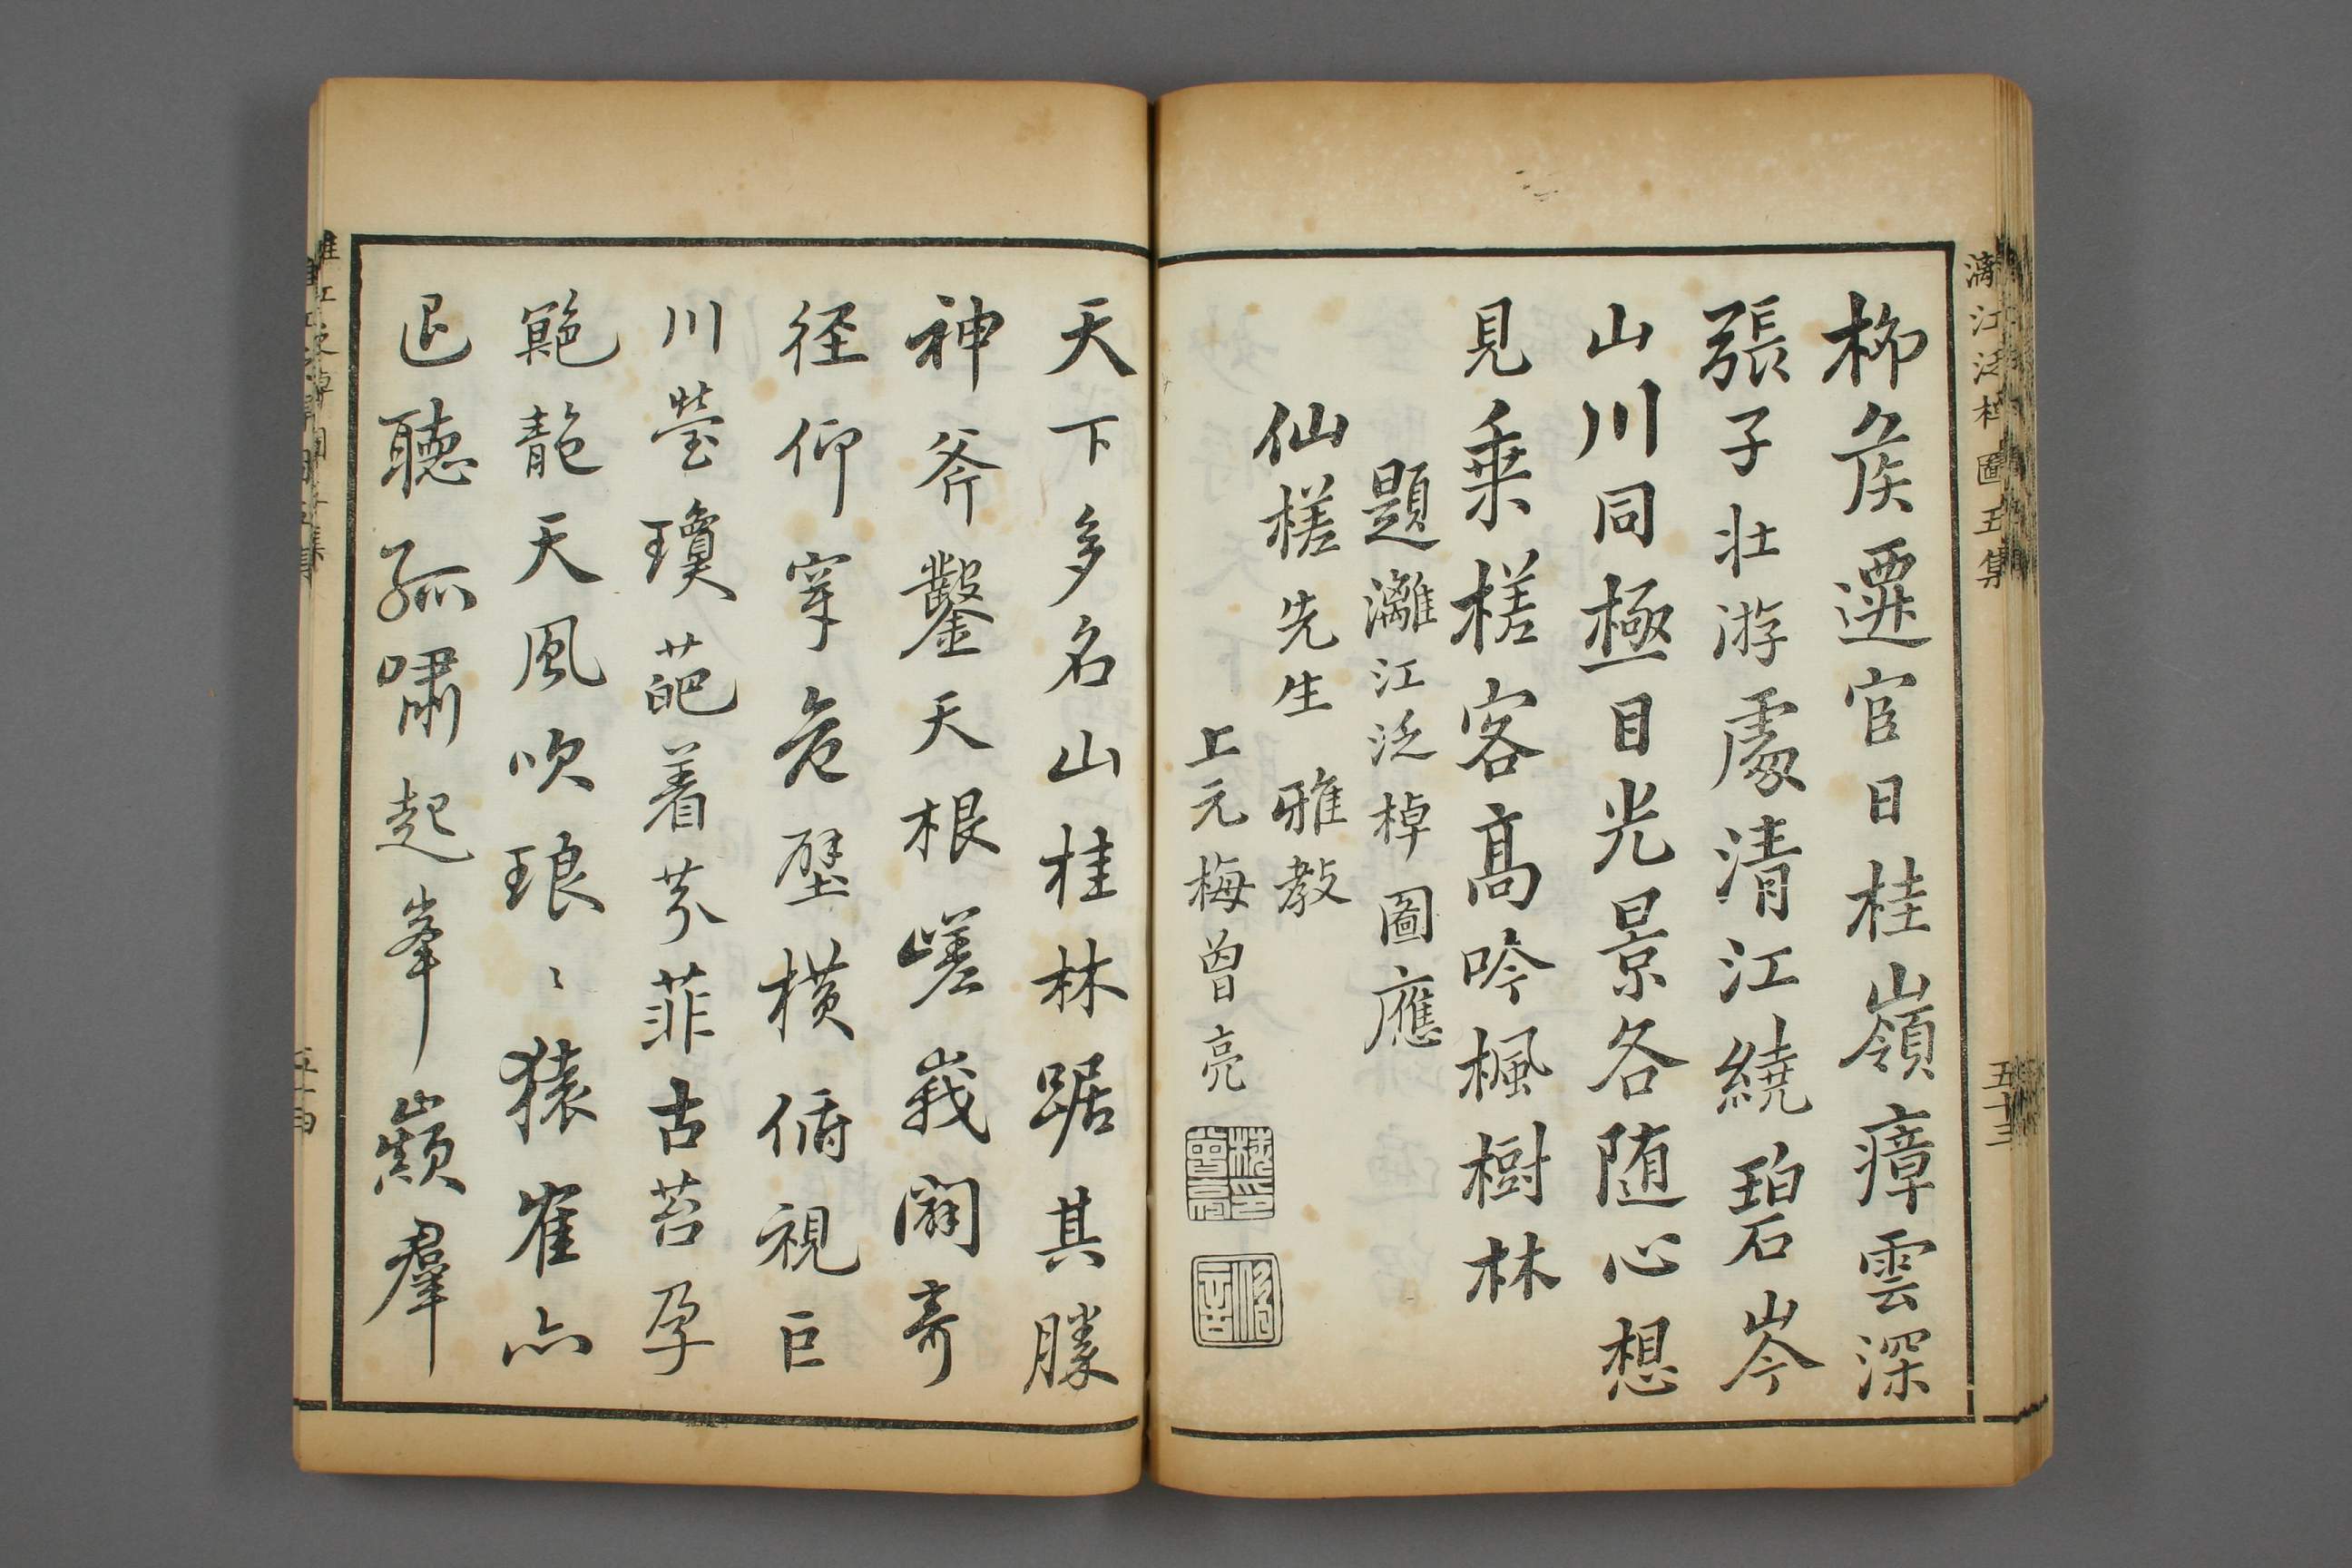 漓江泛棹圖五集
五十三
柳矦遷官日桂嶺瘴雲深
張子壯游處清江繞碧岑
山川同極目光景各随心想
見乗槎客髙吟楓樹林
題灕江泛棹圖應
仙槎先生 雅教
上元梅曾亮
天下多名山桂林踞其勝
神斧鑿天根嵯峩闢竒
徑仰窣危壁橫俯視巨
川瑩瓊葩着芬菲古苔孕
艴艵天風吹琅〻猿隺亦
㠯聽孤嘯起峯巔羣
五十四